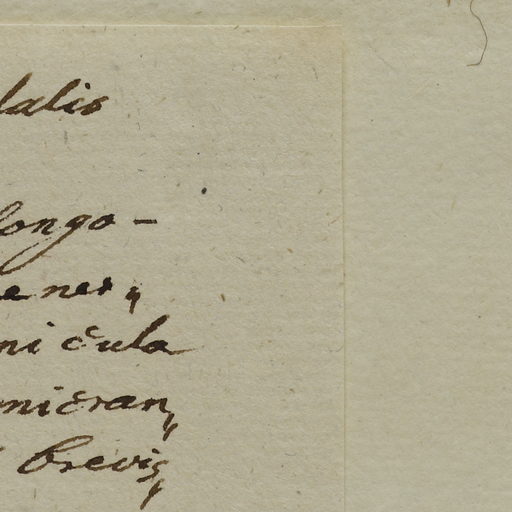 dalis
longo-
e ner„
ni cula
micran„
brevis„